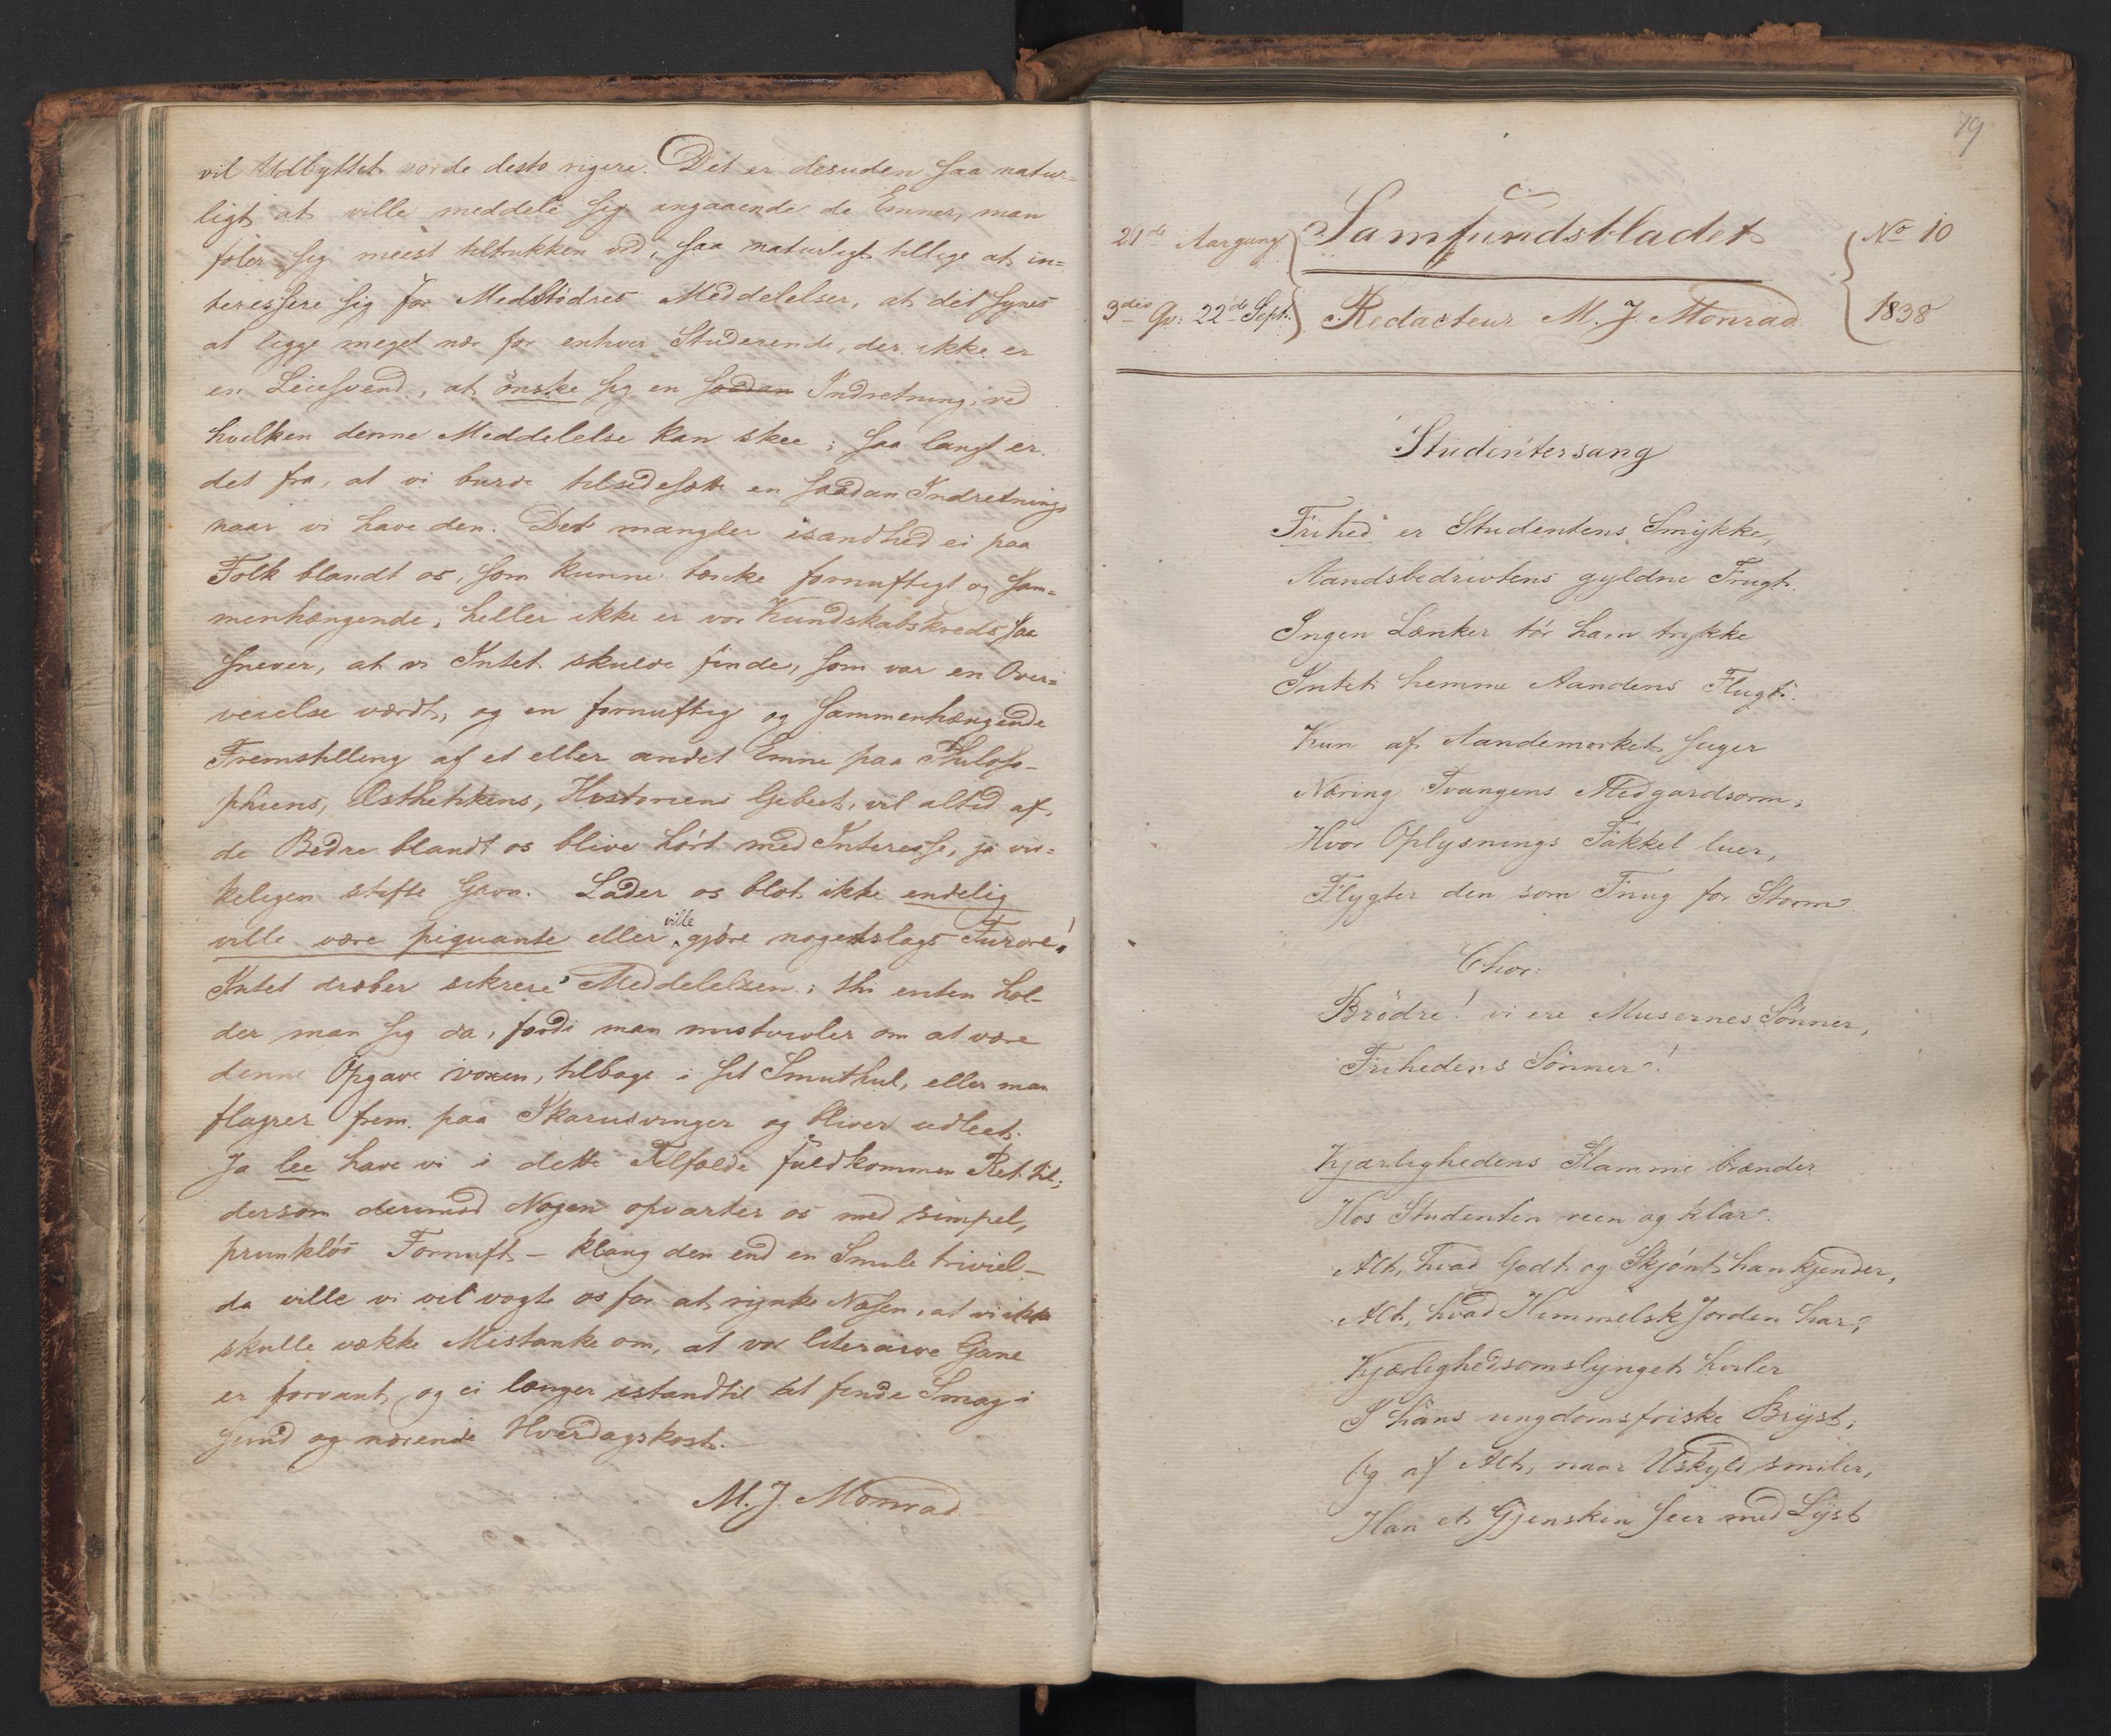 vil Udbyttet vorde desto rigere. Det er desuden saa natur-
ligt at ville meddele sig angaaende de Emner, man
føler sig meest tiltrukken ved, saa naturligt tillige at in-
teressere sig for Medbrødres Meddelelser, at det synes
at ligge meget nær for enhver Studerende, der ikke er
en Leiesvend, at önske sig en saadan Indretning, ved
hvilken denne Meddelelse kan skee; saa langt er
det fra, at vi burde tilsidesætte en saadan Indretning
naar vi have den. Det mangler isandhed ei paa
Folk blandt os, som kunne tænke fornuftigt og sam-
menhængende; heller ikke er vor Kundskabskreds saa
snever, at vi Intet skulde finde, som var en Over-
veielse værdt, og en fornuftig og sammenhængende
Fremstilling af et eller andet Emne paa Philoso-
phiens, Æsthetikens, Historiens Gebeet, vil altid af
de Bedre blandt os blive hört med Interesse, ja vir-
keligen stifte Gavn. Lader os blot ikke endelig
ville være piquante eller ville gjöre nogetslags Furore!
Intet dræber sikrere Meddelelsen; thi enten hol-
der man sig da, fordi man mistvivler om at være
denne Opgave voxen, tilbage i sit Smuthul, eller man
flagrer frem paa Ikarusvinger og bliver udleet.
Ja lee have vi i dette Tilfælde fuldkommen Ret til;
dersom derimod Nogen opvarter os med simpel,
prunklös Fornuft – klang den end en Smule triviel –
da ville vi vel vogte os for at rynke Næsen, at vi ikke
skulle vække Mistanke om, at vor literaire Gane
er forvant og ei længer istandtil at finde Smag i
sund og nærende Hverdagskost. –
M. J. Monrad.
79
21de Aargang Samfundsbladet No 10
3die Qv: 22de Sept. Redacteur M. J. Monrad 1838
Studentersang
Frihed er Studentens Smykke,
Aandsbedrivtens gyldne Frugt.
Ingen Lænker tör ham trykke
Intet hemme Aandens Flugt.
Kun af Aandemörket suger
Næring Tvangens Midgardsorm,
Hvor Oplysnings Fakkel luer,
Flygter den som Fnug for Storm
Chor:
Brödre! vi ere Musernes Sönner,
Frihedens Sönner!
Kjærlighedens Flamme brænder
Hos Studenten reen og klar.
Alt, hvad Godt og Skjönt han kjender,
Alt, hvad Himmelsk Jorden har,
Kjærlighedsomslynget hviler
I hans ungdomsfriske Bryst,
Og af Alt, naar Uskyld smiler,
Han et Gjenskin seer med Lyst